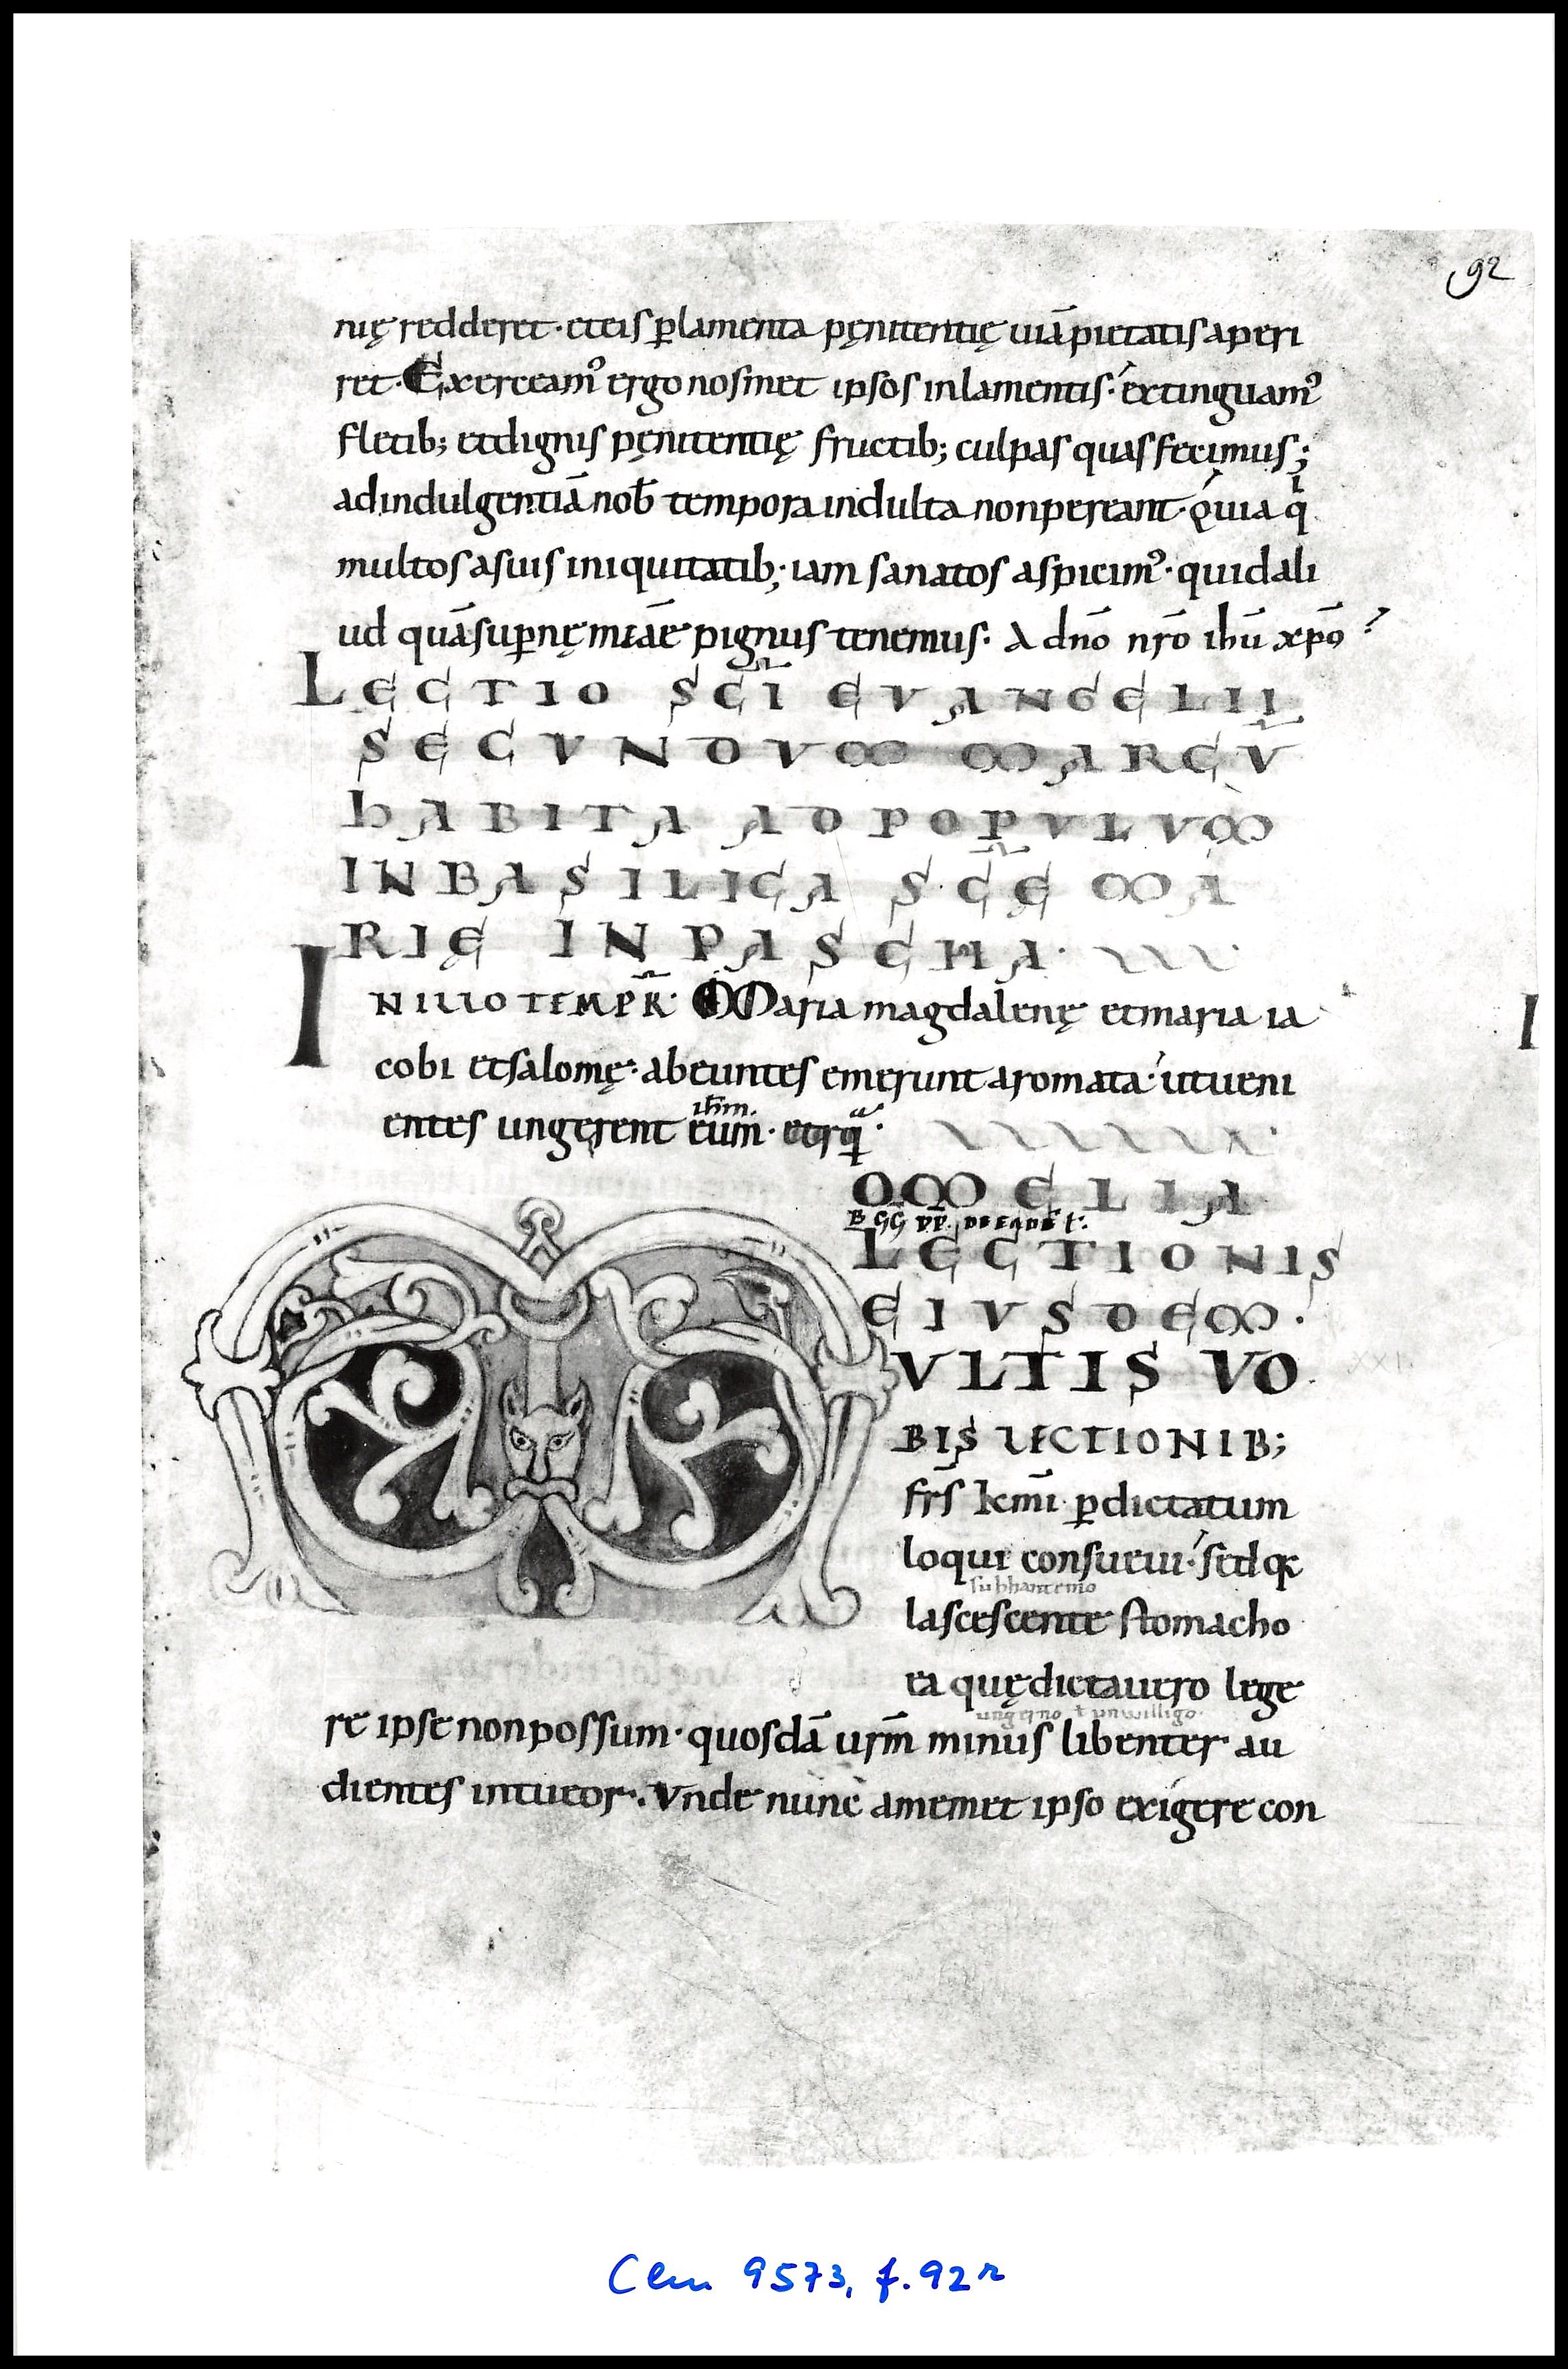 92
nię redderet · et eis ꝑ lamenta pęnitentię uiā pietatis aperi
ret · Exerceam᾽ ergo nosmet ipsos in lamentis · extinguam᾽
fletib; et dignis pęnitentię fructib; culpas quas fecimus;
ad indulgentiā nob̄ tempora indulta non pereant · Quia q̇
multos a suis iniquitatib; iam sanatos aspicim᾽ · quid ali
ud quā suꝑnę miǣ pignus tenemus · A dn̄o nr̄o ih̄u xp̄o
LECTIO SC̄I EVANGELII
SECUNDUM MARCŪ
HABITA AD POPULUM
IN BASILICA SC̄Ę MA
RIĘ IN PASCHA ·
IN ILLO TEMPR̄ · Maria magdalenę et maria ia
cobi et salomę · abeuntes emerunt aromata · ut ueni
ih̄m.
entes ungerent eum · et rqͣ ·
OMELIA
B GG PP. DE EADĒ L̵.
LECTIONIS
EIUSDEM ·
MULTIS VO
BIS LECTIONIB;
fr̄s km̄i · ꝑ dictatum
loqui consueui · sed qꝛ
lascescente stomacho
ea quę dictauero lege
ungerno ł unwilligo ·
re ipse non possum · quosdā ur̄m minus libenter au
dientes intueor · Vnde nunc a memet ipso exigere con
Clm 9573, f. 92r